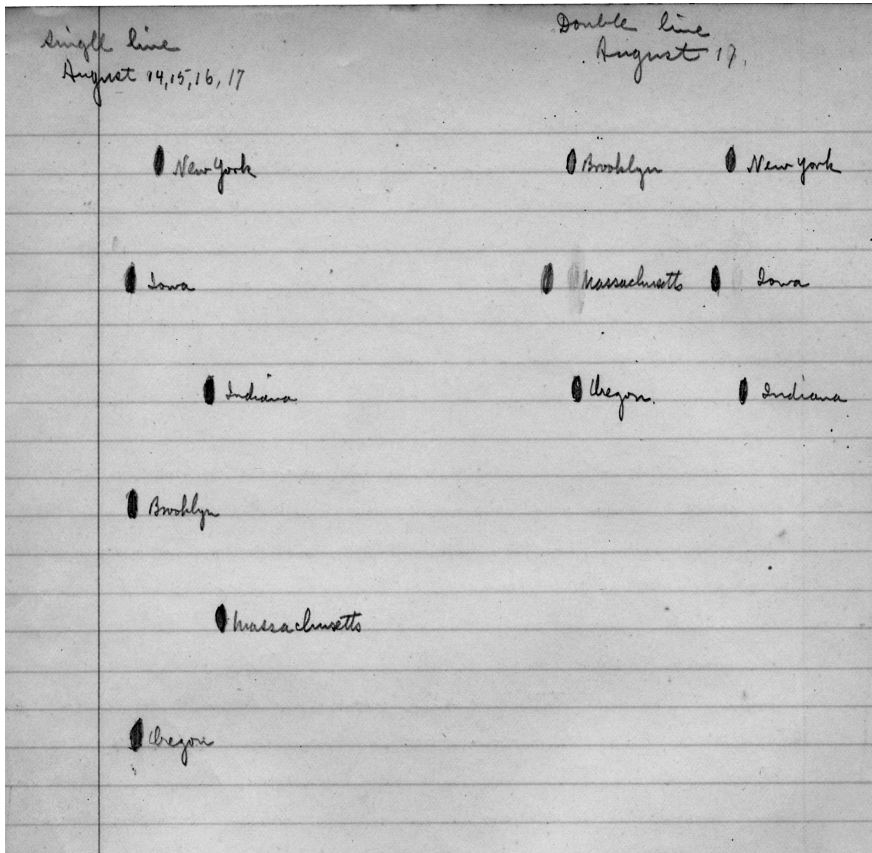 Single line
August 14, 15, 16, 17
New York
Iowa
Indiana
Brooklyn
Massachusetts
Oregon
Double line
August 17.
Brooklyn New York
Massachusetts Iowa
Oregon. Indiana